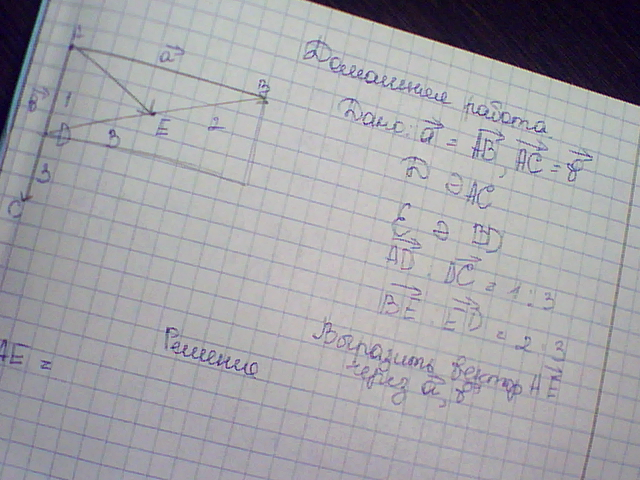 A
a⃗
B
b⃗
1
D
3
E
2
3
C
Домашняя работа
Дано: a⃗ = AB⃗, AC⃗ = b⃗
D ∋ AC
E ∋ BD
AD⃗ : DC⃗ = 1 : 3
BE⃗ : ED⃗ = 2 : 3
Выразить вектор AE⃗
через a⃗, b⃗
Решение
AE =